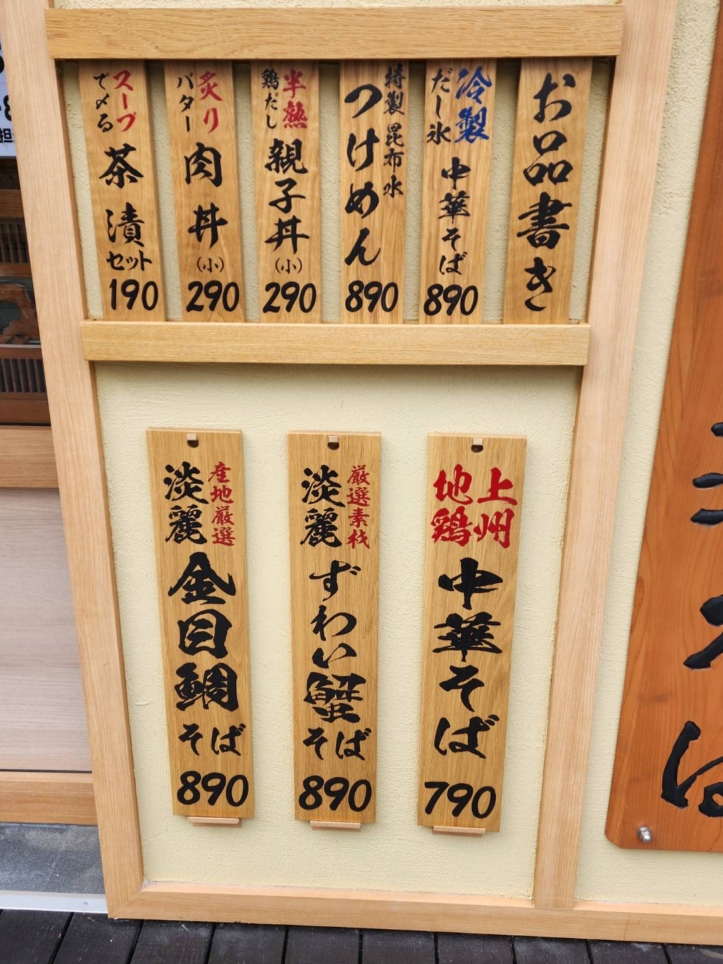 お品書き
冷製
だし氷
中華そば
890
特製 昆布水
つけめん
890
半熟
鶏だし
親子丼
(小)
290
炙り
バター
肉丼
(小)
290
スープ
で〆る
茶漬
セット
190
上州
地鶏
中華そば
790
厳選素材
淡麗
ずわい蟹
そば
890
産地厳選
淡麗
金目鯛
そば
890